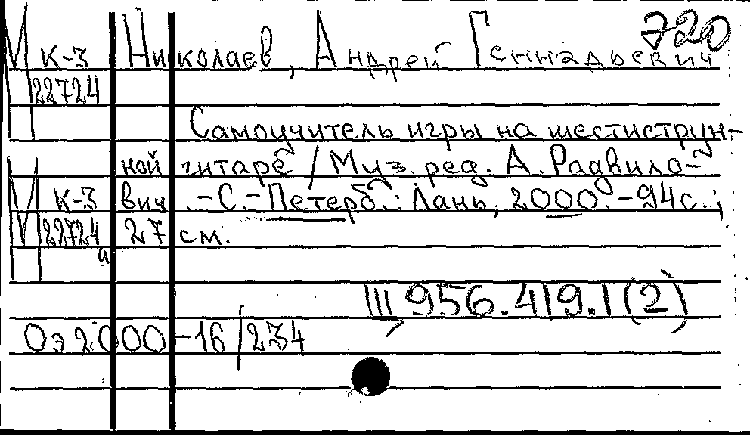 720
М к-3 Николаев, Андрей Геннадьевич
22724
Самоучитель игры на шестиструн-
ной гитаре / Муз. ред. А. Радвило-
М к-3 вич. - С.-Петерб.: Лань, 2000. - 94с.;
22724 27 см.
а
Ш 956.419.1(2)
Оз 2000-16/234